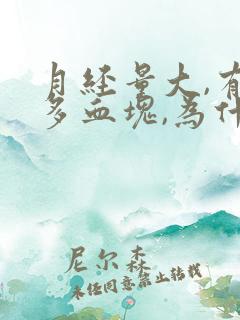 月経量大,有
多血塊,為什
尼尔森
未经同意禁止转载